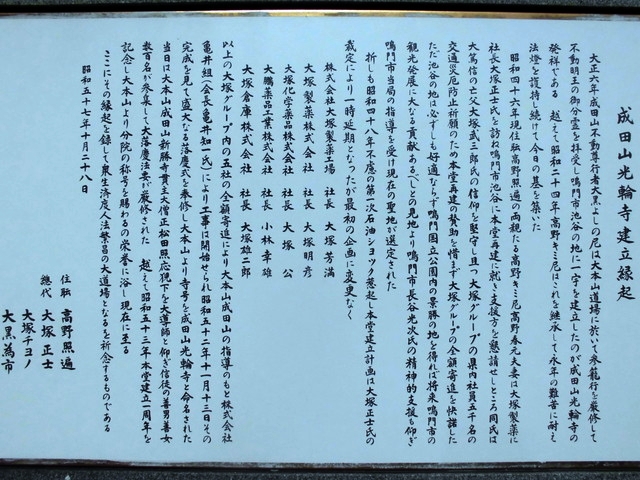 成田山光輪寺建立縁起
大正六年成田山不動尊行者大黒よしの尼は大本山道場に於いて参籠行を厳修して
不動明王の御分霊を拝受し鳴門市池谷の地に一宇を建立したのが成田山光輪寺の
発祥である 越えて昭和二十四年高野キミ尼はこれを継承して永年の難苦に耐え
法燈を護持し続けて今日の基を築いた
昭和四十六年現住職高野照遍の両親たる高野キミ尼高野春元夫妻は大塚製薬に
社長大塚正士氏を訪ね鳴門市池谷に本堂再建に就き支援方を懇請せしところ同氏は
大篤信の亡父大塚武三郎氏の信仰を堅守し且つ大塚グループの県内社員五千名の
交通災厄防止祈願のため本堂再建の賛助を惜まず大塚グループの全額寄進を快諾した
ただ池谷の地は必ずしも好適ならず鳴門国立公園内の景勝の地を得れば将来鳴門市の
観光発展に大なる貢献あるべしとの見地より鳴門市長谷光次氏の精神的支援も仰ぎ
鳴門市当局の指導を受け現在の聖地が選定された
折しも昭和四十八年不慮の第一次石油ショック惹起し本堂建立計画は大塚正士氏の
裁定により一時延期となったが最初の企画に変更なく
株式会社大塚製薬工場 社長 大塚芳満
大塚製薬株式会社 社長 大塚明彦
大塚化学薬品株式会社 社長 大塚公
大鵬薬品工業株式会社 社長 小林幸雄
大塚倉庫株式会社 社長 大塚勇二郎
以上の大塚グループ内の五社の全額寄進により大本山成田山の指導のもと株式会社
亀井組(会長亀井知一氏)により工事は開始せられ昭和五十二年十一月十三日その
完成を見て盛大なる落慶式を奉修し大本山より寺号を成田山光輪寺と命名された
当日は大本山成田山新勝寺貫主大僧正松田照応猊下を大導師と仰ぎ信徒の善男善女
数百名が参集して大落慶法要が厳修された 越えて昭和五十三年本堂建立一周年を
記念し大本山より分院の称号を賜わるの栄誉に浴し現在に至る
ここにその縁起を録して衆生済度人法繁昌の大道場となるを祈念するものである
昭和五十七年十月二十八日
住職 高野照遍
総代 大塚正士
大塚チヨノ
大黒為市